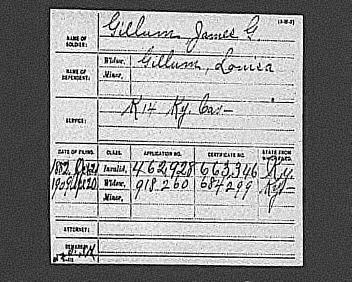 (3-1)
NAME OF SOLDIER: Gillum, James G.
NAME OF DEPENDENT: Widow, Gillum, Louisa
Minor,
SERVICE: K 14 Ky. Cav.
DATE OF FILING. CLASS. APPLICATION NO. CERTIFICATE NO. STATE FROM WHICH FILED.
1882 Oct 21 Invalid, 462928 663,346 Ky.
1909 20 Widow, 918260 684299 Ky
Minor,
ATTORNEY:
REMARKS: